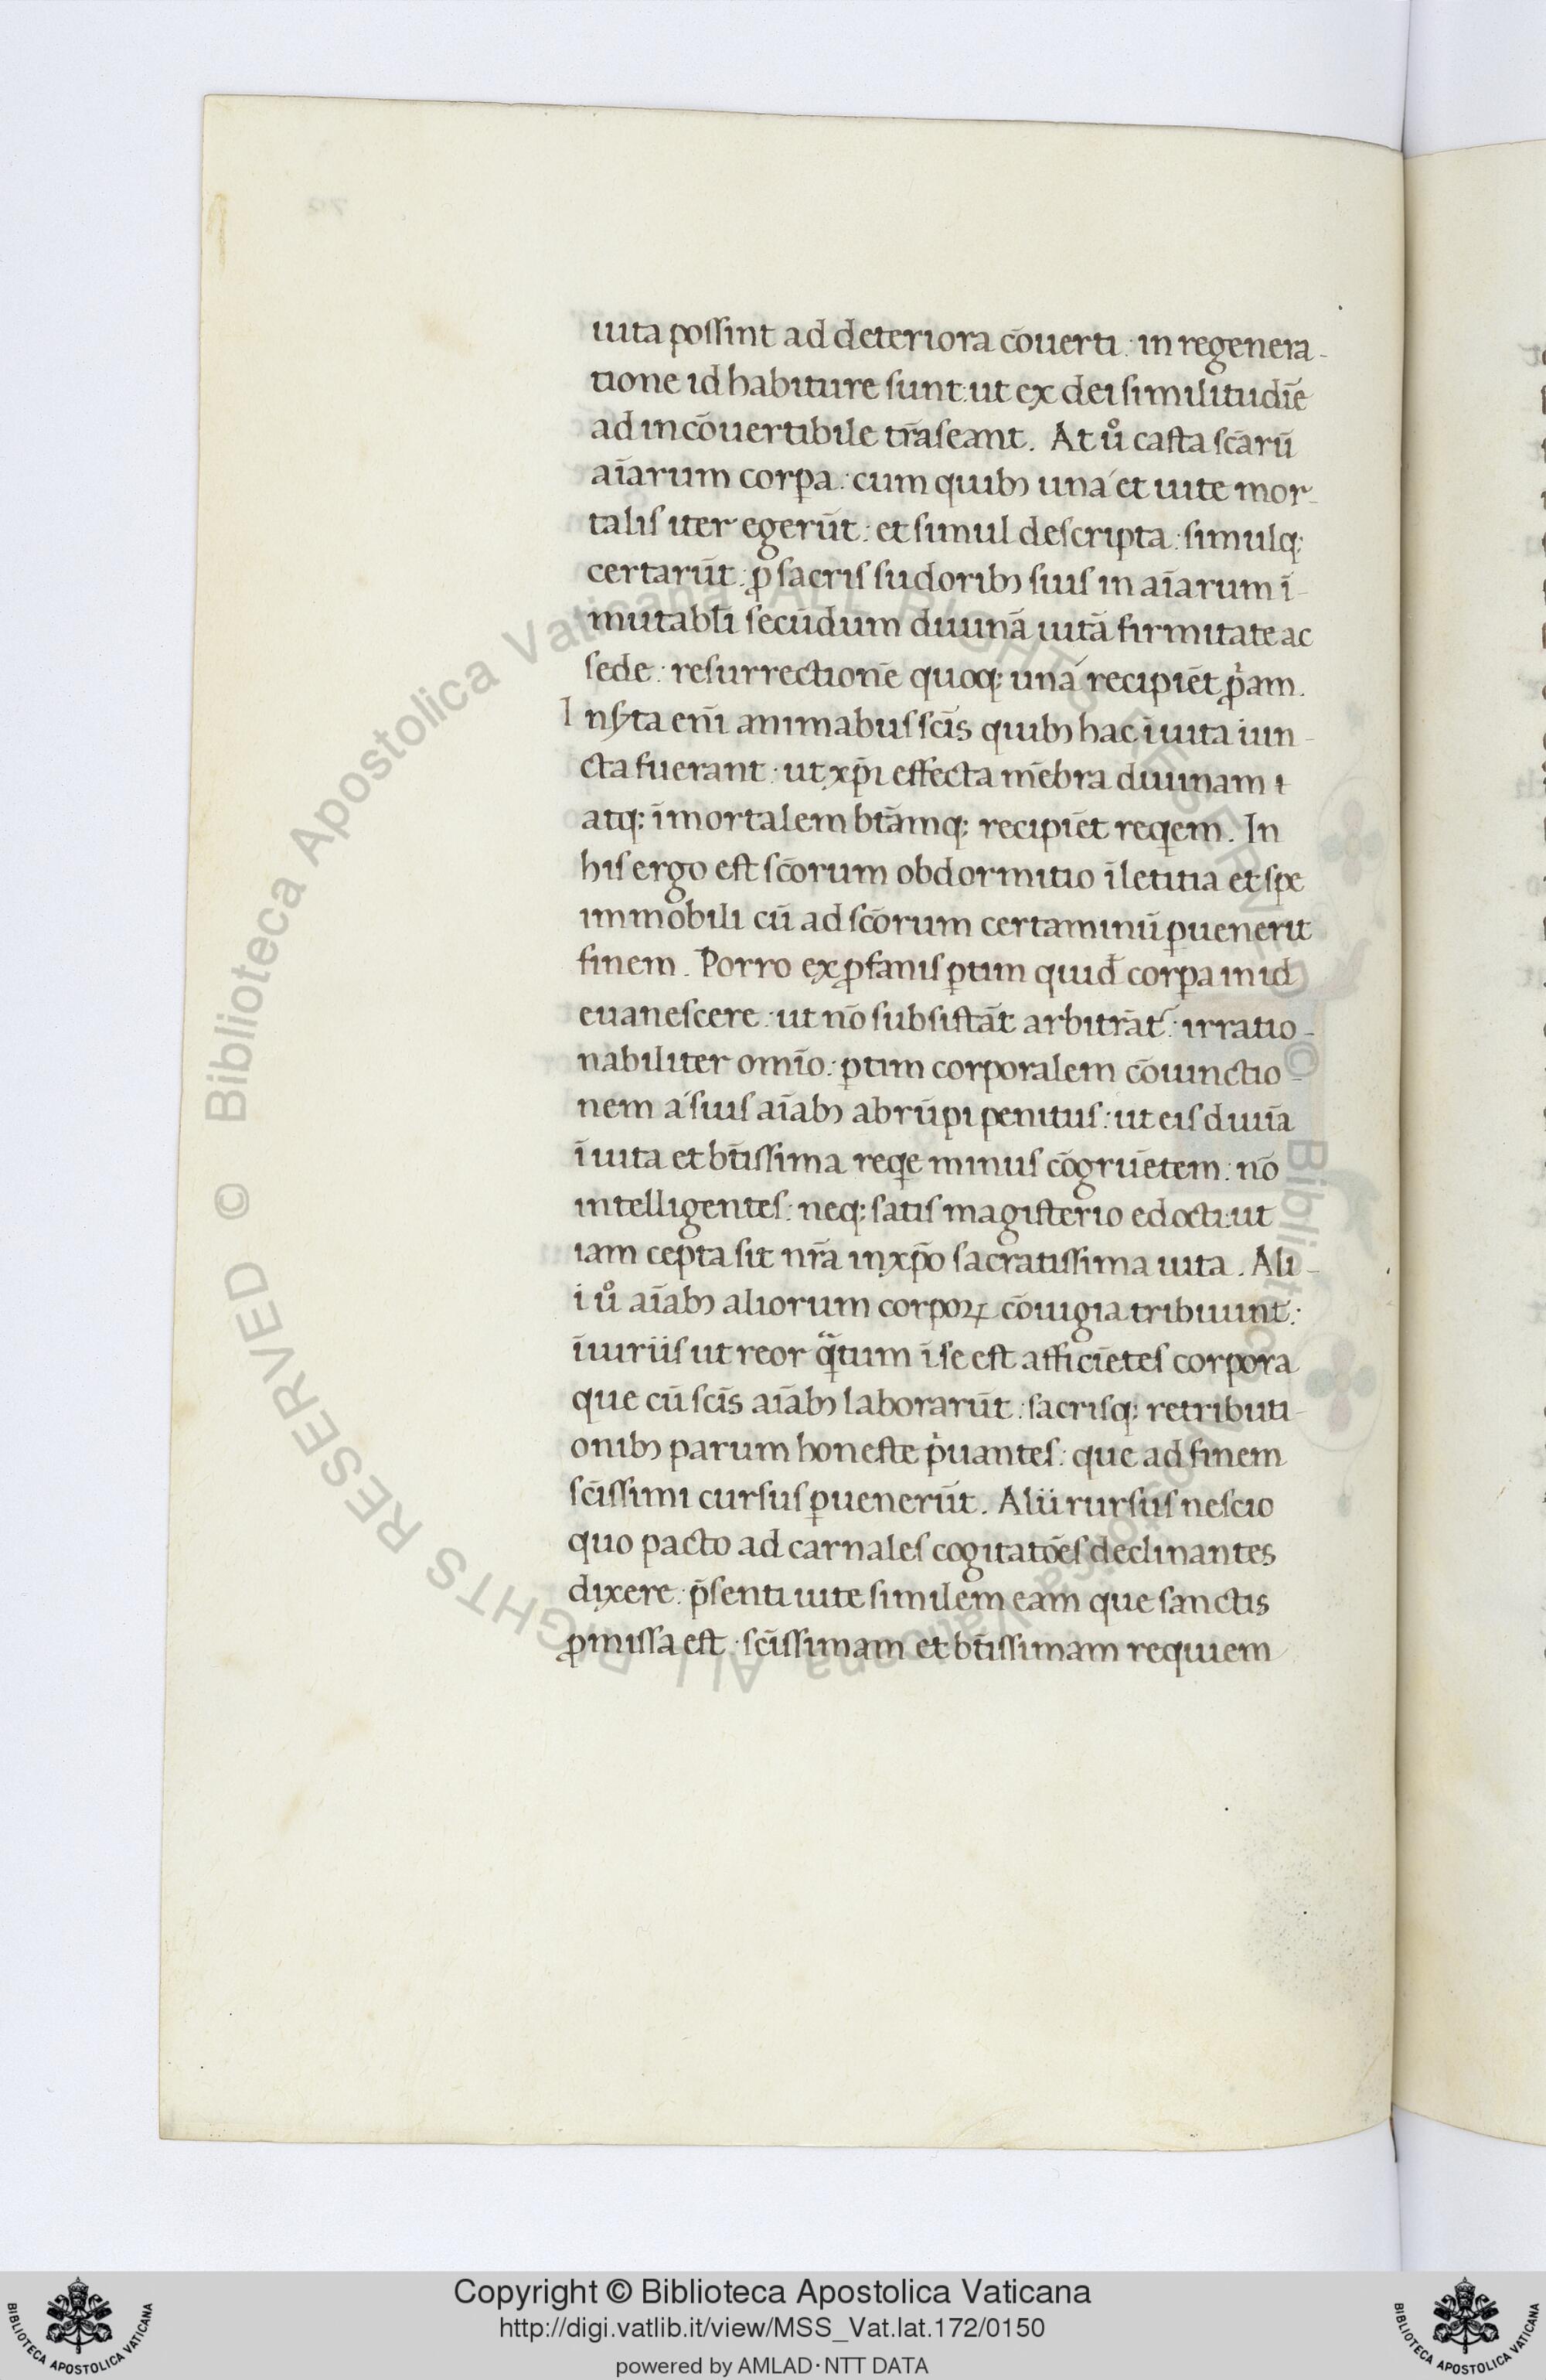 uita possint ad deteriora cōuerti : in regenera-
tione id habiture sunt : ut ex dei similitudīe
ad incōuertibile trāseant. At uº casta scārū
aīarum corꝑa : cum quibꝫ una et uite mor-
talis iter egerūt : et simul descripta : simulq;
certarūt : ꝓ sacris sudoribꝫ suis in aīarum ī-
mutabli secūdum diuinā uitā firmitate ac
sede : resurrectionē quoq; una recipiēt ꝓ́am.
Insyta enī animabus scīs quibꝫ hac ī uita iun-
cta fuerant : ut xp̄i effecta mēbra diuinam t
atq; īmortalem btāmq; recipiēt reqem. In
his ergo est scōrum obdormitio ī letitia et spe
immobili cū ad scōrum certaminū ꝑuenerit
finem. Porro ex ꝓfanis ꝑtim quid̄ corꝑa in id
euanescere : ut nō subsistāt arbitrāt᷑ : irratio-
nabiliter omīo : ꝑtim corporalem cōiunctio-
nem a suis aīabꝫ abrūpi penitus : ut eis diuīa
ī uita et btīssima reqe minus cōgruētem : nō
intelligentes : neq; satis magisterio edocti : ut
iam cepta sit nrā in xp̄o sacratissima uita. Ali-
i uº aīabꝫ aliorum corpoꝝ cōiugia tribuunt :
īiuriis ut reor qᷓtum ī se est afficiētes corpora
que cū scīs aīabꝫ laborarūt : sacrisq; retributi-
onibꝫ parum honeste pⁱuantes : que ad finem
scīssimi cursus ꝑuenerūt. Alii rursus nescio
quo pacto ad carnales cogitatōes declinantes
dixere : p̄senti uite similem eam que sanctis
ꝓmissa est : scīssimam et btīssimam requiem
© Biblioteca Apostolica Vaticana ALL RIGHTS RESERVED
© Biblioteca Apostolica Vaticana ALL RIGHTS RESERVED
Copyright © Biblioteca Apostolica Vaticana
http://digi.vatlib.it/view/MSS_Vat.lat.172/0150
powered by AMLAD·NTT DATA
BIBLIOTECA APOSTOLICA VATICANA
BIBLIOTECA APOSTOLICA VATICANA